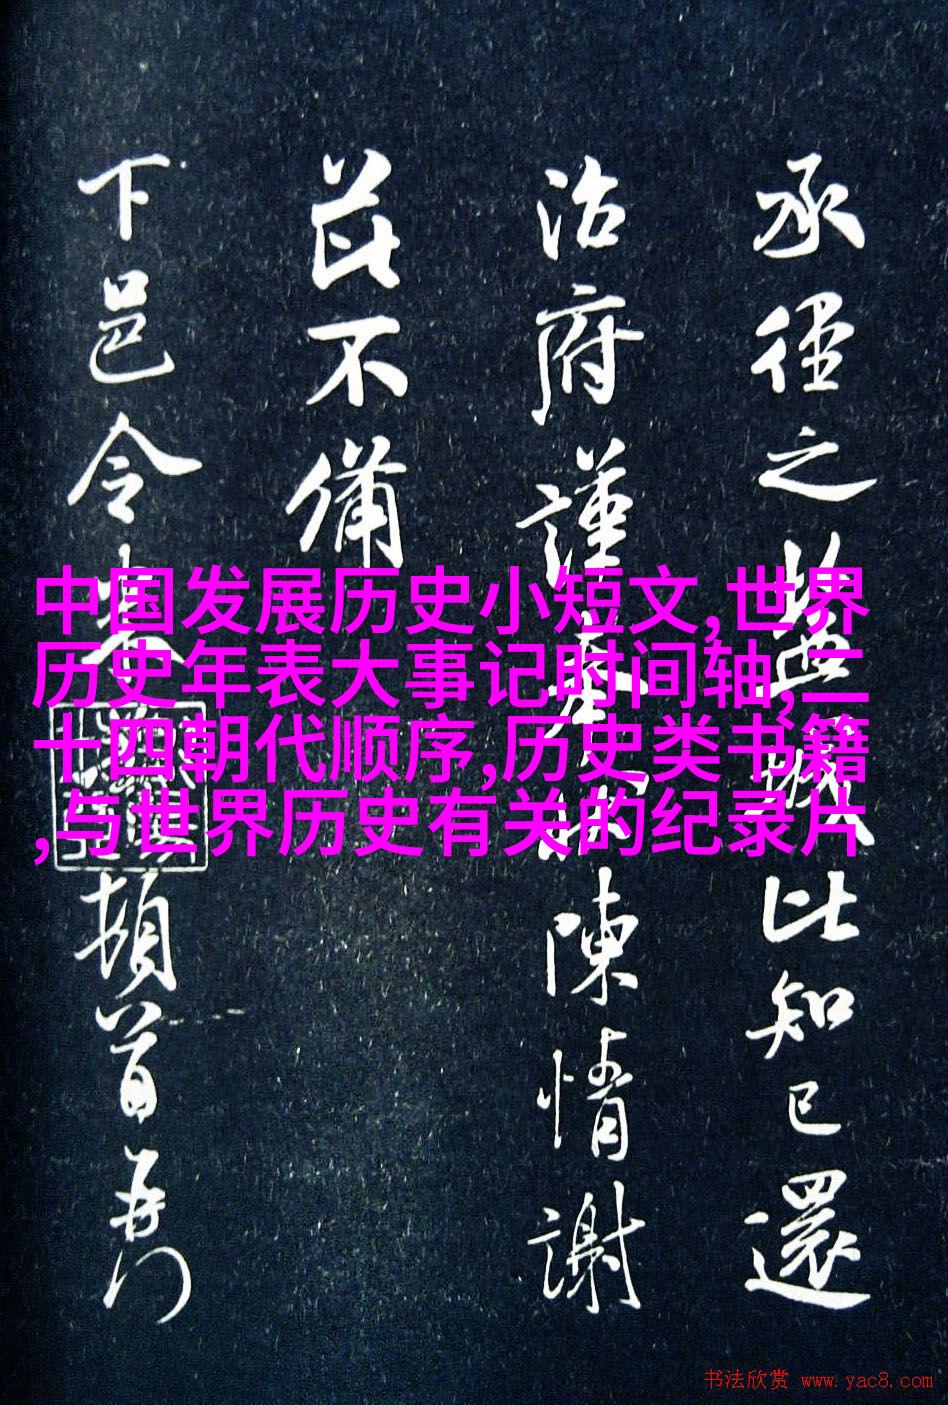 承径之
比知已還
治府謹奉
陳情謝
茲不備
下邑令
頓首再
中国发展历史小短文,世界
历史年表大事记时间轴,二
十四朝代顺序,历史类书籍
,与世界历史有关的纪录片
书法欣赏 www.yac8.com